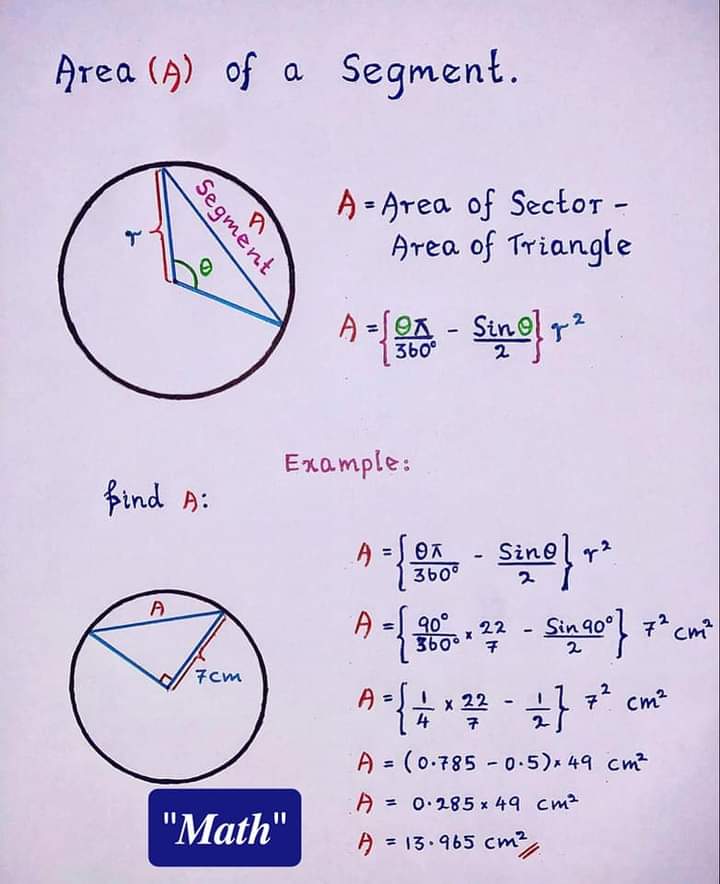 Area (A) of a Segment.
Segment
A
r
θ
A = Area of Sector -
Area of Triangle
A = {θπ/360° - Sinθ/2} r²
Example:
find A:
A
7cm
A = {θπ/360° - Sinθ/2} r²
A = {90°/360° × 22/7 - Sin90°/2} 7² cm²
A = {1/4 × 22/7 - 1/2} 7² cm²
A = (0.785 - 0.5) × 49 cm²
A = 0.285 × 49 cm²
A = 13.965 cm²
"Math"